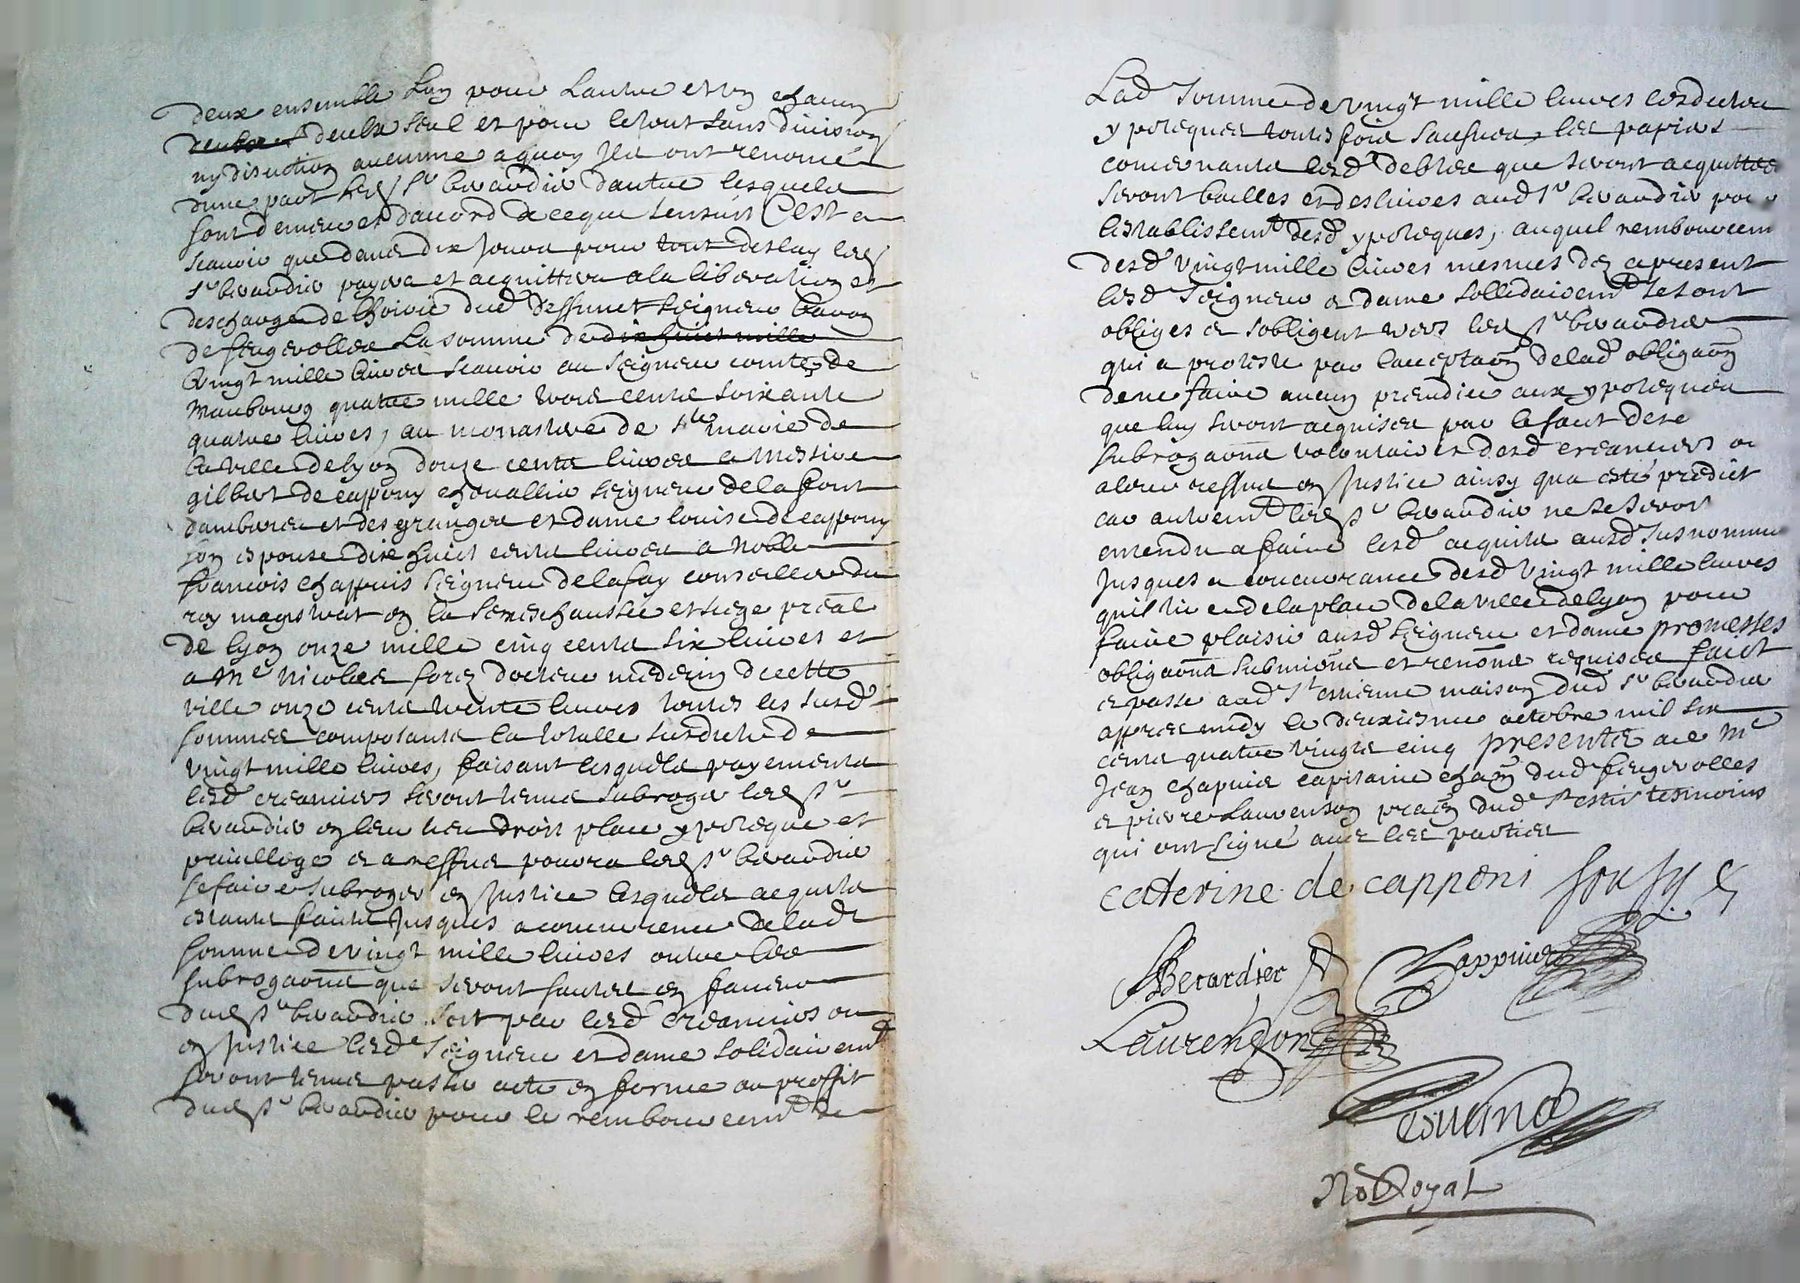 deux ensemble Luy pour Lautre et un chacun
deulx seul et pour le tout sans division
ny discution aucunne a quoy Ilz ont renoncé
dune part led Sr berardier dautre lesquels
sont demeures daccord de ce que sensuit Cest a
scavoir que dans dix jours pour tout deslay led
Sr berardier payera et acquittera a la liberation et
descharge de dud deffunct seigneur baron
de feugerolles La somme de dix huict mille
vingt mille livres scavoir au seigneur comte de
Maubourg quatre mille trois cents soixante
quatre livres, au monastere de Ste marie de
la ville de lyon douze cents livres a Messire
gilbert de cappony chevallier seigneur de la font
dambaree et des granges et dame louise de cappony
son espouse dix huict cents livres a Noble
francois chappuis seigneur de lafay conseiller du
roy magistrat en la seneschaussée et siege préal
de lyon onze mille cinq cents six livres et
a Me Nicolas forez docteur medecin de cette
ville onze cents trente livres toutes les susd
sommes composants la totalle susdite de
vingt mille livres, faisant lesquels payements
lesd creanciers seront tenus subroger led Sr
berardier en leur lieu droit place ypoteque et
privillege et a reffus pourra led Sr berardier
se faire subroger en justice lesquels acquits
estants faits jusques a concurrence de lad
somme de vingt mille livres outre les
subrogaons que seront faites en faveur
dud Sr berardier soit par lesd creanciers ou
en justice lesd seigneur et dame solidairemt
seront tenus passer acte en forme au proffit
dud Sr berardier pour le remboursemt de
Lad somme de vingt mille livres
ypoteques toutesfois les papiers
concernants lesd debtes que seront acquittés
seront bailles et deslivres aud Sr berardier pour
lestablissemt desd ypoteques, auquel remboursem
desd vingt mille livres mesmes des a present
lesd seigneur et dame sollidairemt se sont
obliges et sobligent vers led Sr berardier
qui a proteste par lacceptaon de lad obligaon
de ne faire aucun prejudice aux ypoteques
que luy seront acquises par le faict des
subrogaons volontaires desd creanciers ou
a leur reffus en justice ainsy qua esté predict
car autremt led Sr berardier ne se seroit
entendu a faire lesd acquits ausd susnommes
jusques a concurrance desd vingt mille livres
quil tire de la place de la ville de lyon pour
faire plaisir ausd seigneur et dame promesses
obligaons submions et renons requises faict
et passe aud St estienne maison dud Sr berardier
appres midy le deuxiesme octobre mil six
cents quatre vingts cinq presents a ce Me
Jean chapuis capitaine chatn dud feugerolles
et pierre Laurenson pratn dud St estie tesmoins
qui ont signé avec les parties
caterine de capponi
Berardier Chappuis
Laurenson
No Royal